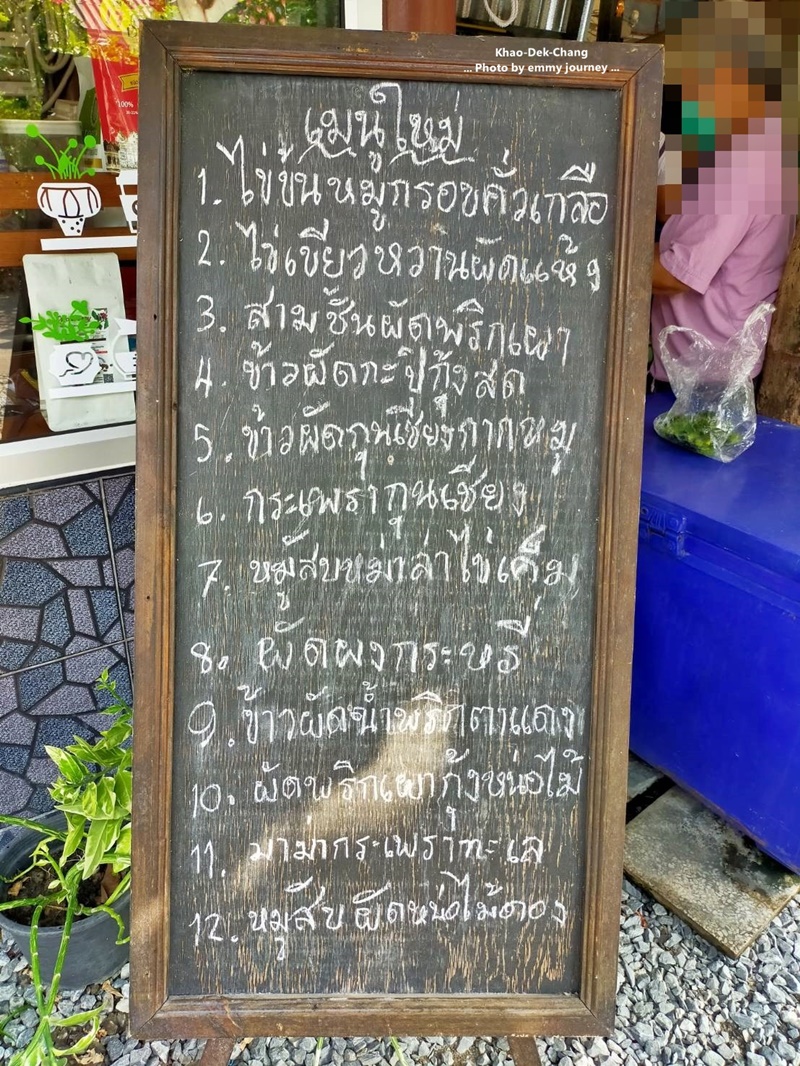 Khao-Dek-Chang
... Photo by emmy journey ...
100%
เมนูใหม่
1. ไข่ข้นหมูกรอบคั่วเกลือ
2. ไข่เขียวหวานผัดแห้ง
3. สามชั้นผัดพริกเผา
4. ข้าวผัดกะปิกุ้งสด
5. ข้าวผัดกุนเชียงกากหมู
6. กระเพรากุนเชียง
7. หมูสับหม่าล่าไข่เค็ม
8. ผัดผงกระหรี่
9. ข้าวผัดน้ำพริกตาแดง
10. ผัดพริกเผากุ้งหน่อไม้
11. มาม่ากระเพราทะเล
12. หมูสับผัดหน่อไม้ดอง